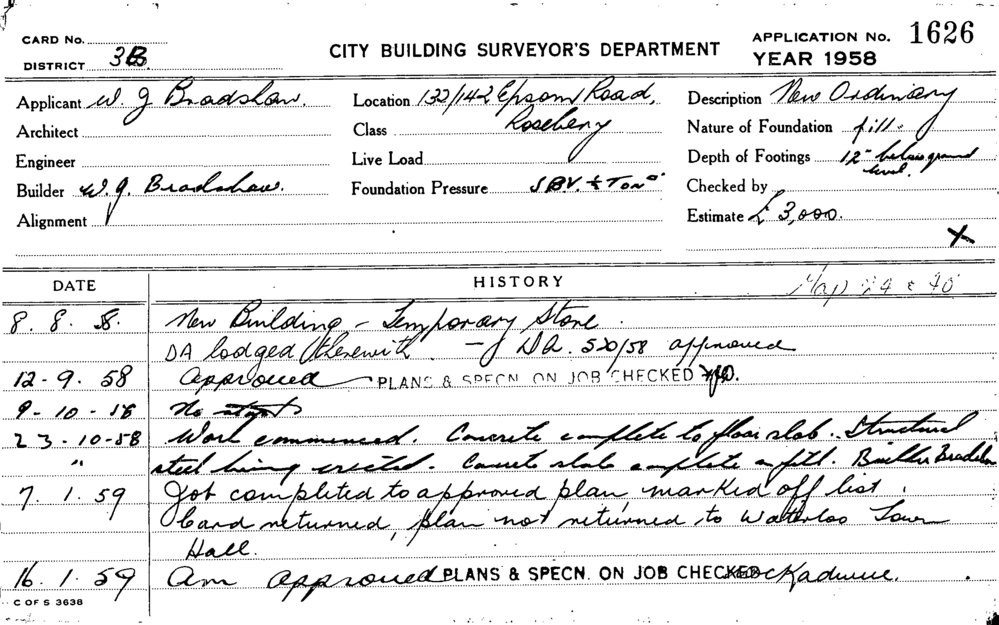 CARD No.
DISTRICT 3B.
CITY BUILDING SURVEYOR'S DEPARTMENT
APPLICATION No. 1626
YEAR 1958
Applicant W. J Bradshaw.
Location 132/142 Epsom Road,
Rosebery
Description New Ordinary
Architect
Class
Nature of Foundation fill.
Engineer
Live Load
Depth of Footings 12" below ground
level.
Builder W. J. Bradshaw.
Foundation Pressure SBV. ½ Ton
Checked by
Alignment
Estimate £ 3,000.
X
DATE
HISTORY
Map 24 & 40
8. 8. 58. New Building - Temporary Store.
DA lodged therewith. - DA. 520/58 approved
12-9. 58 Approved PLANS & SPECN. ON JOB CHECKED
9-10-58 No start
23-10-58 Work commenced. Concrete complete to floor slab. Structural
" steel being erected. Concrete slab complete on fill. Builder Bradshaw
7. 1. 59 Job completed to approved plan marked off list.
Card returned, plan not returned to Waterloo Town
Hall.
16. 1. 59 Am approved PLANS & SPECN. ON JOB CHECKED
C OF S 3638